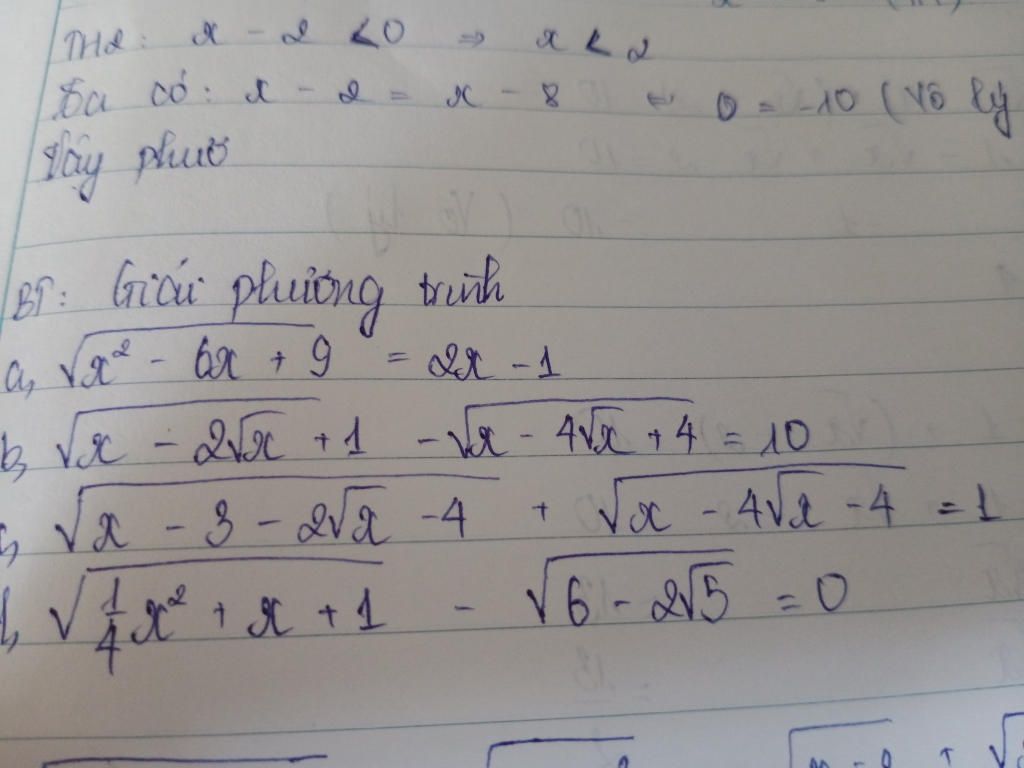 TH2: x - 2 < 0 ⇒ x < 2
Ta có: x - 2 = x - 8 ⇔ 0 = -10 (Vô lý
Vậy phươ
BT: Giải phương trình
a, √(x² - 6x + 9) = 2x - 1
b, √(x - 2√x + 1) - √(x - 4√x + 4) = 10
√(x - 3 - 2√x - 4) + √(x - 4√x - 4) = 1
√(1/4 x² + x + 1) - √(6 - 2√5) = 0